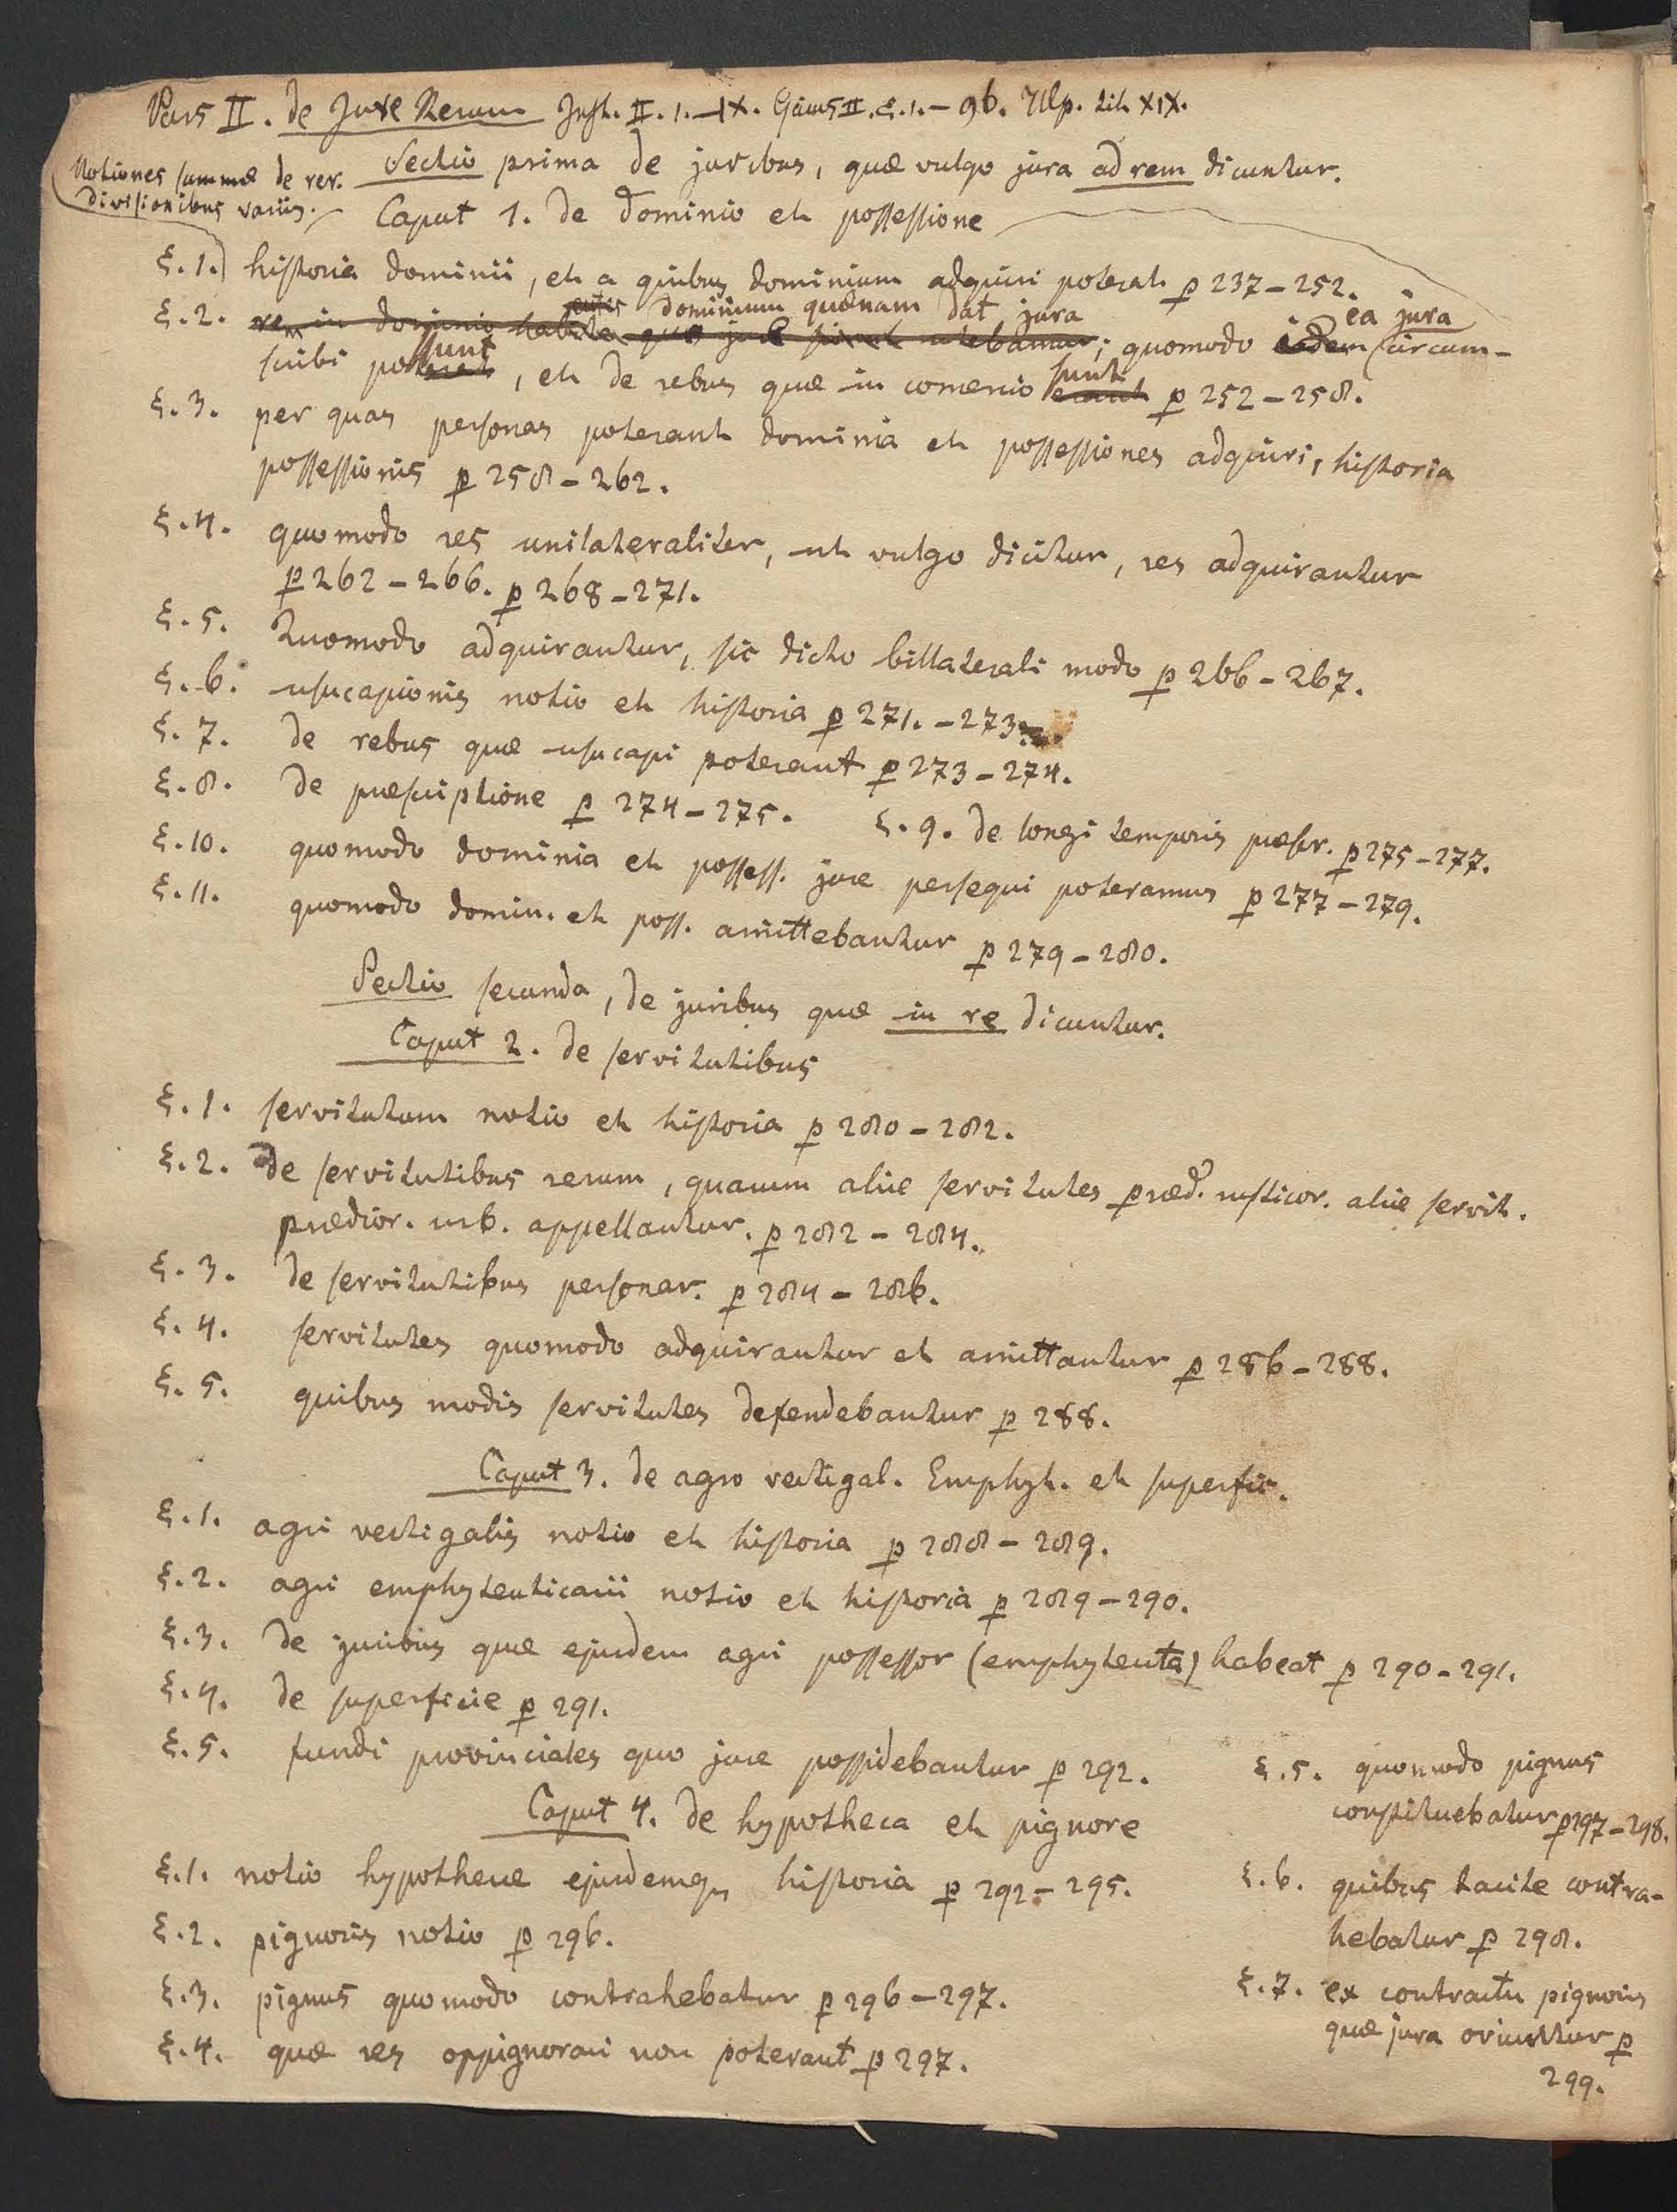 Pars II. de Jure Rerum Inst. II. 1.–IX. Gaius II. §.1.–96. Ulp. tit. XIX.
Notiones summæ de rer. divisionibus variis.
Sectio prima de juribus, quæ vulgo jura ad rem dicuntur.
Caput 1. de dominio et possessione
§.1. historia dominii, et a quibus dominium adquiri poterat p 237–252.
dominium quænam dat jura
ea jura
§.2. rem in dominio habentes quo jure utebamur; quomodo eadem circum-
scribi possunt, et de rebus quæ in comercio sunt erant p 252–258.
§.3. per quas personas poterant dominia et possessiones adquiri, historia
possessionis p 258–262.
§.4. quomodo res unilateraliter, ut vulgo dicitur, res adquirantur
p 262–266. p 268–271.
§.5. Quomodo adquirantur, sic dicto billaterali modo p 266–267.
§.6. usucapionis notio et historia p 271.–273.
§.7. de rebus quæ usucapi poterant p 273–274.
§.8. de præscriptione p 274–275. §.9. de longi temporis præscr. p 275–277.
§.10. quomodo dominia et possess. jure persequi poteramus p 277–279.
§.11. quomodo domin. et poss. amittebantur p 279–280.
Sectio secunda, de juribus quæ in re dicuntur.
Caput 2. de servitutibus
§.1. servitutum notio et historia p 280–282.
§.2. de servitutibus rerum, quarum aliæ servitutes præd. rusticor. aliæ servit.
prædior. urb. appellantur. p 282–284.
§.3. de servitutibus personar. p 284–286.
§.4. servitutes quomodo adquirantur et amittantur p 286–288.
§.5. quibus modis servitutes defendebantur p 288.
Caput 3. de agro vectigal. Emphyt. et superfic.
§.1. agri vectigalis notio et historia p 288–289.
§.2. agri emphyteuticarii notio et historia p 289–290.
§.3. de juribus quæ ejusdem agri possessor (emphyteuta) habeat p 290–291.
§.4. de superficie p 291.
§.5. fundi provinciales quo jure possidebantur p 292.
Caput 4. de hypotheca et pignore
§.1. notio hypothecæ ejusdemq, historia p 292–295.
§.2. pignoris notio p 296.
§.3. pignus quomodo contrahebatur p 296–297.
§.4. quæ res oppignorari non poterant p 297.
§.5. quomodo pignus
constituebatur p 297–298.
§.6. quibus tacite contra-
hebatur p 298.
§.7. ex contractu pignoris
quæ jura oriuntur p
299.